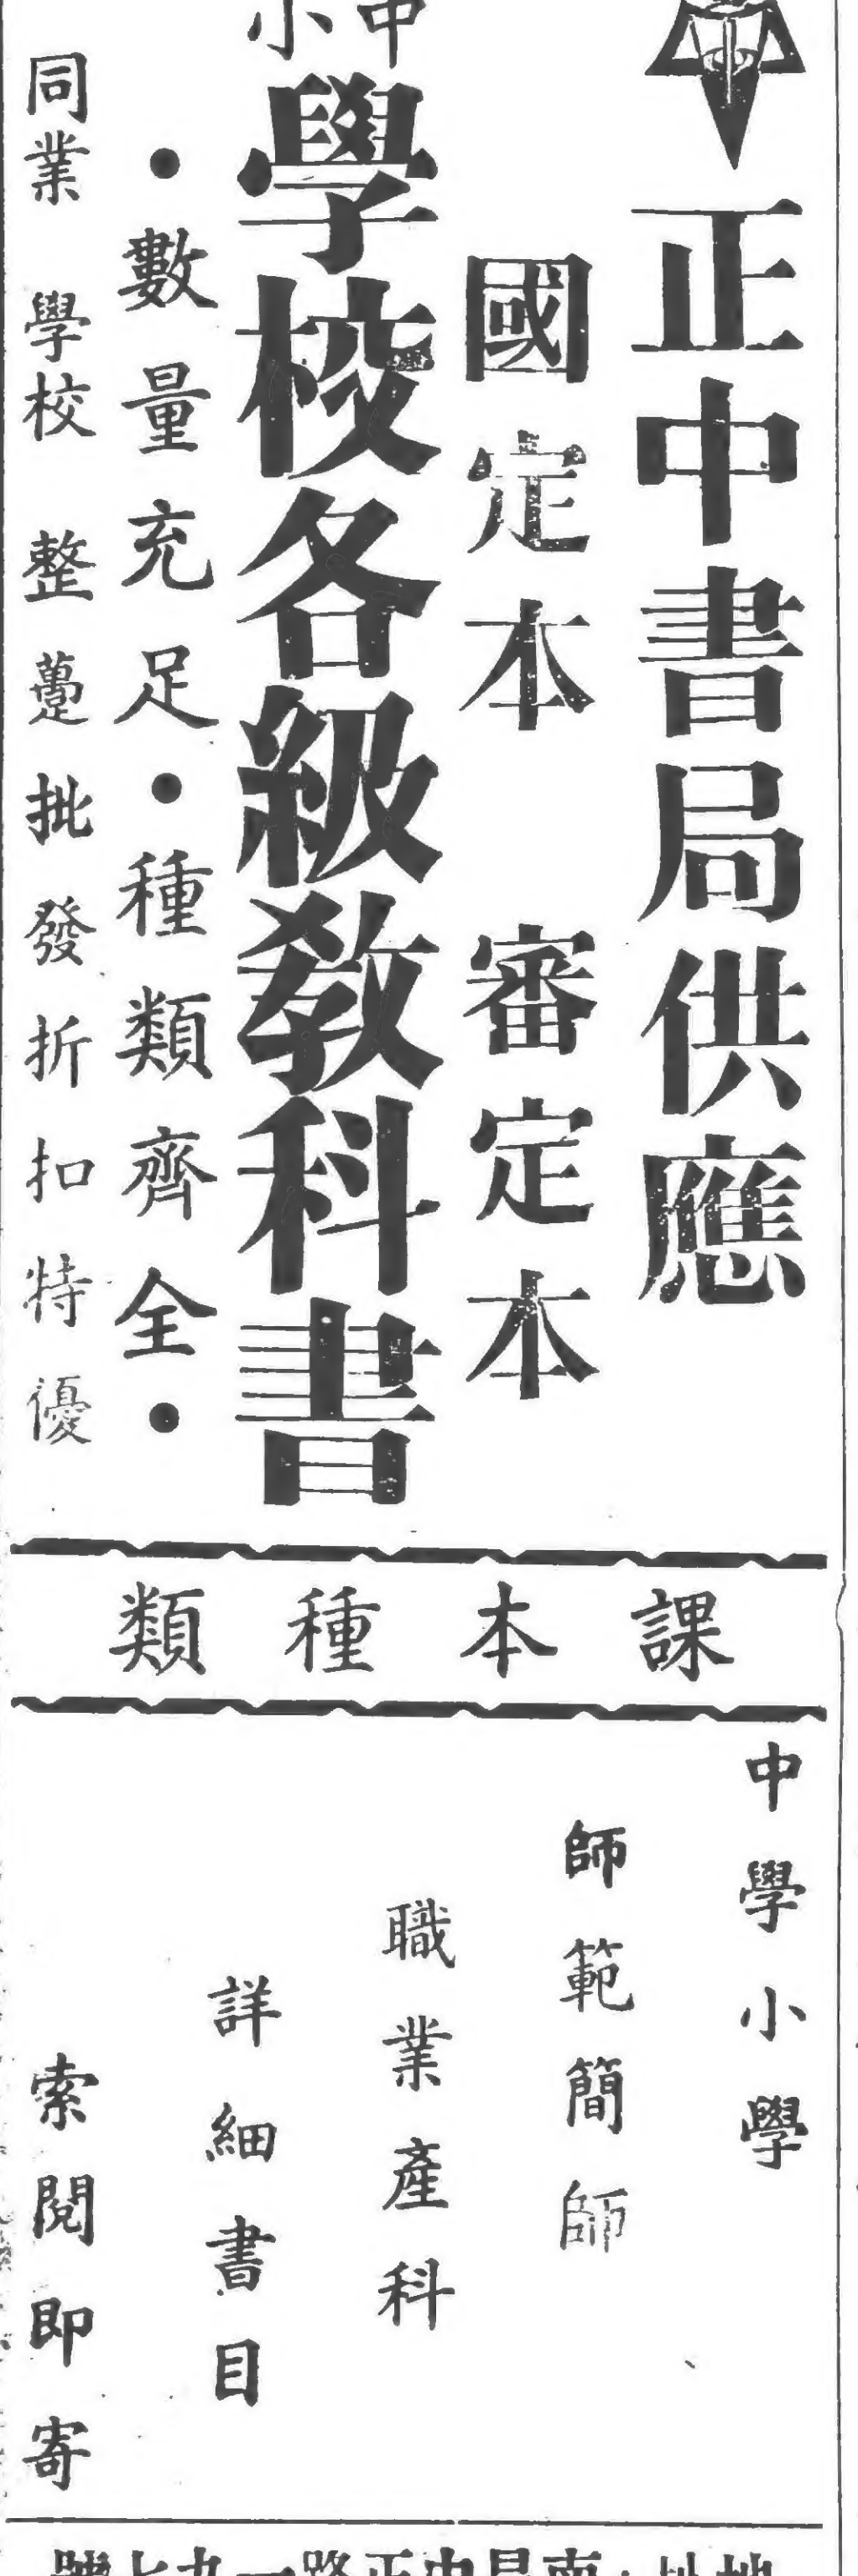 正中書局供應
國定本 審定本
中小學校各級教科書
•數量充足•種類齊全•
同業 學校 整躉批發折扣特優
課本種類
中學小學
師範簡師
職業產科
詳細書目
索閱即寄
地址：南昌中正路一九七號